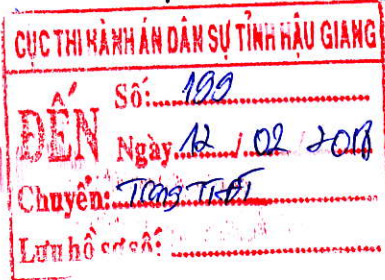 CỤC THI HÀNH ÁN DÂN SỰ TỈNH HẬU GIANG
ĐẾN
Số: 199
Ngày 12 / 02 / 2018
Chuyển:
Lưu hồ sơ số: